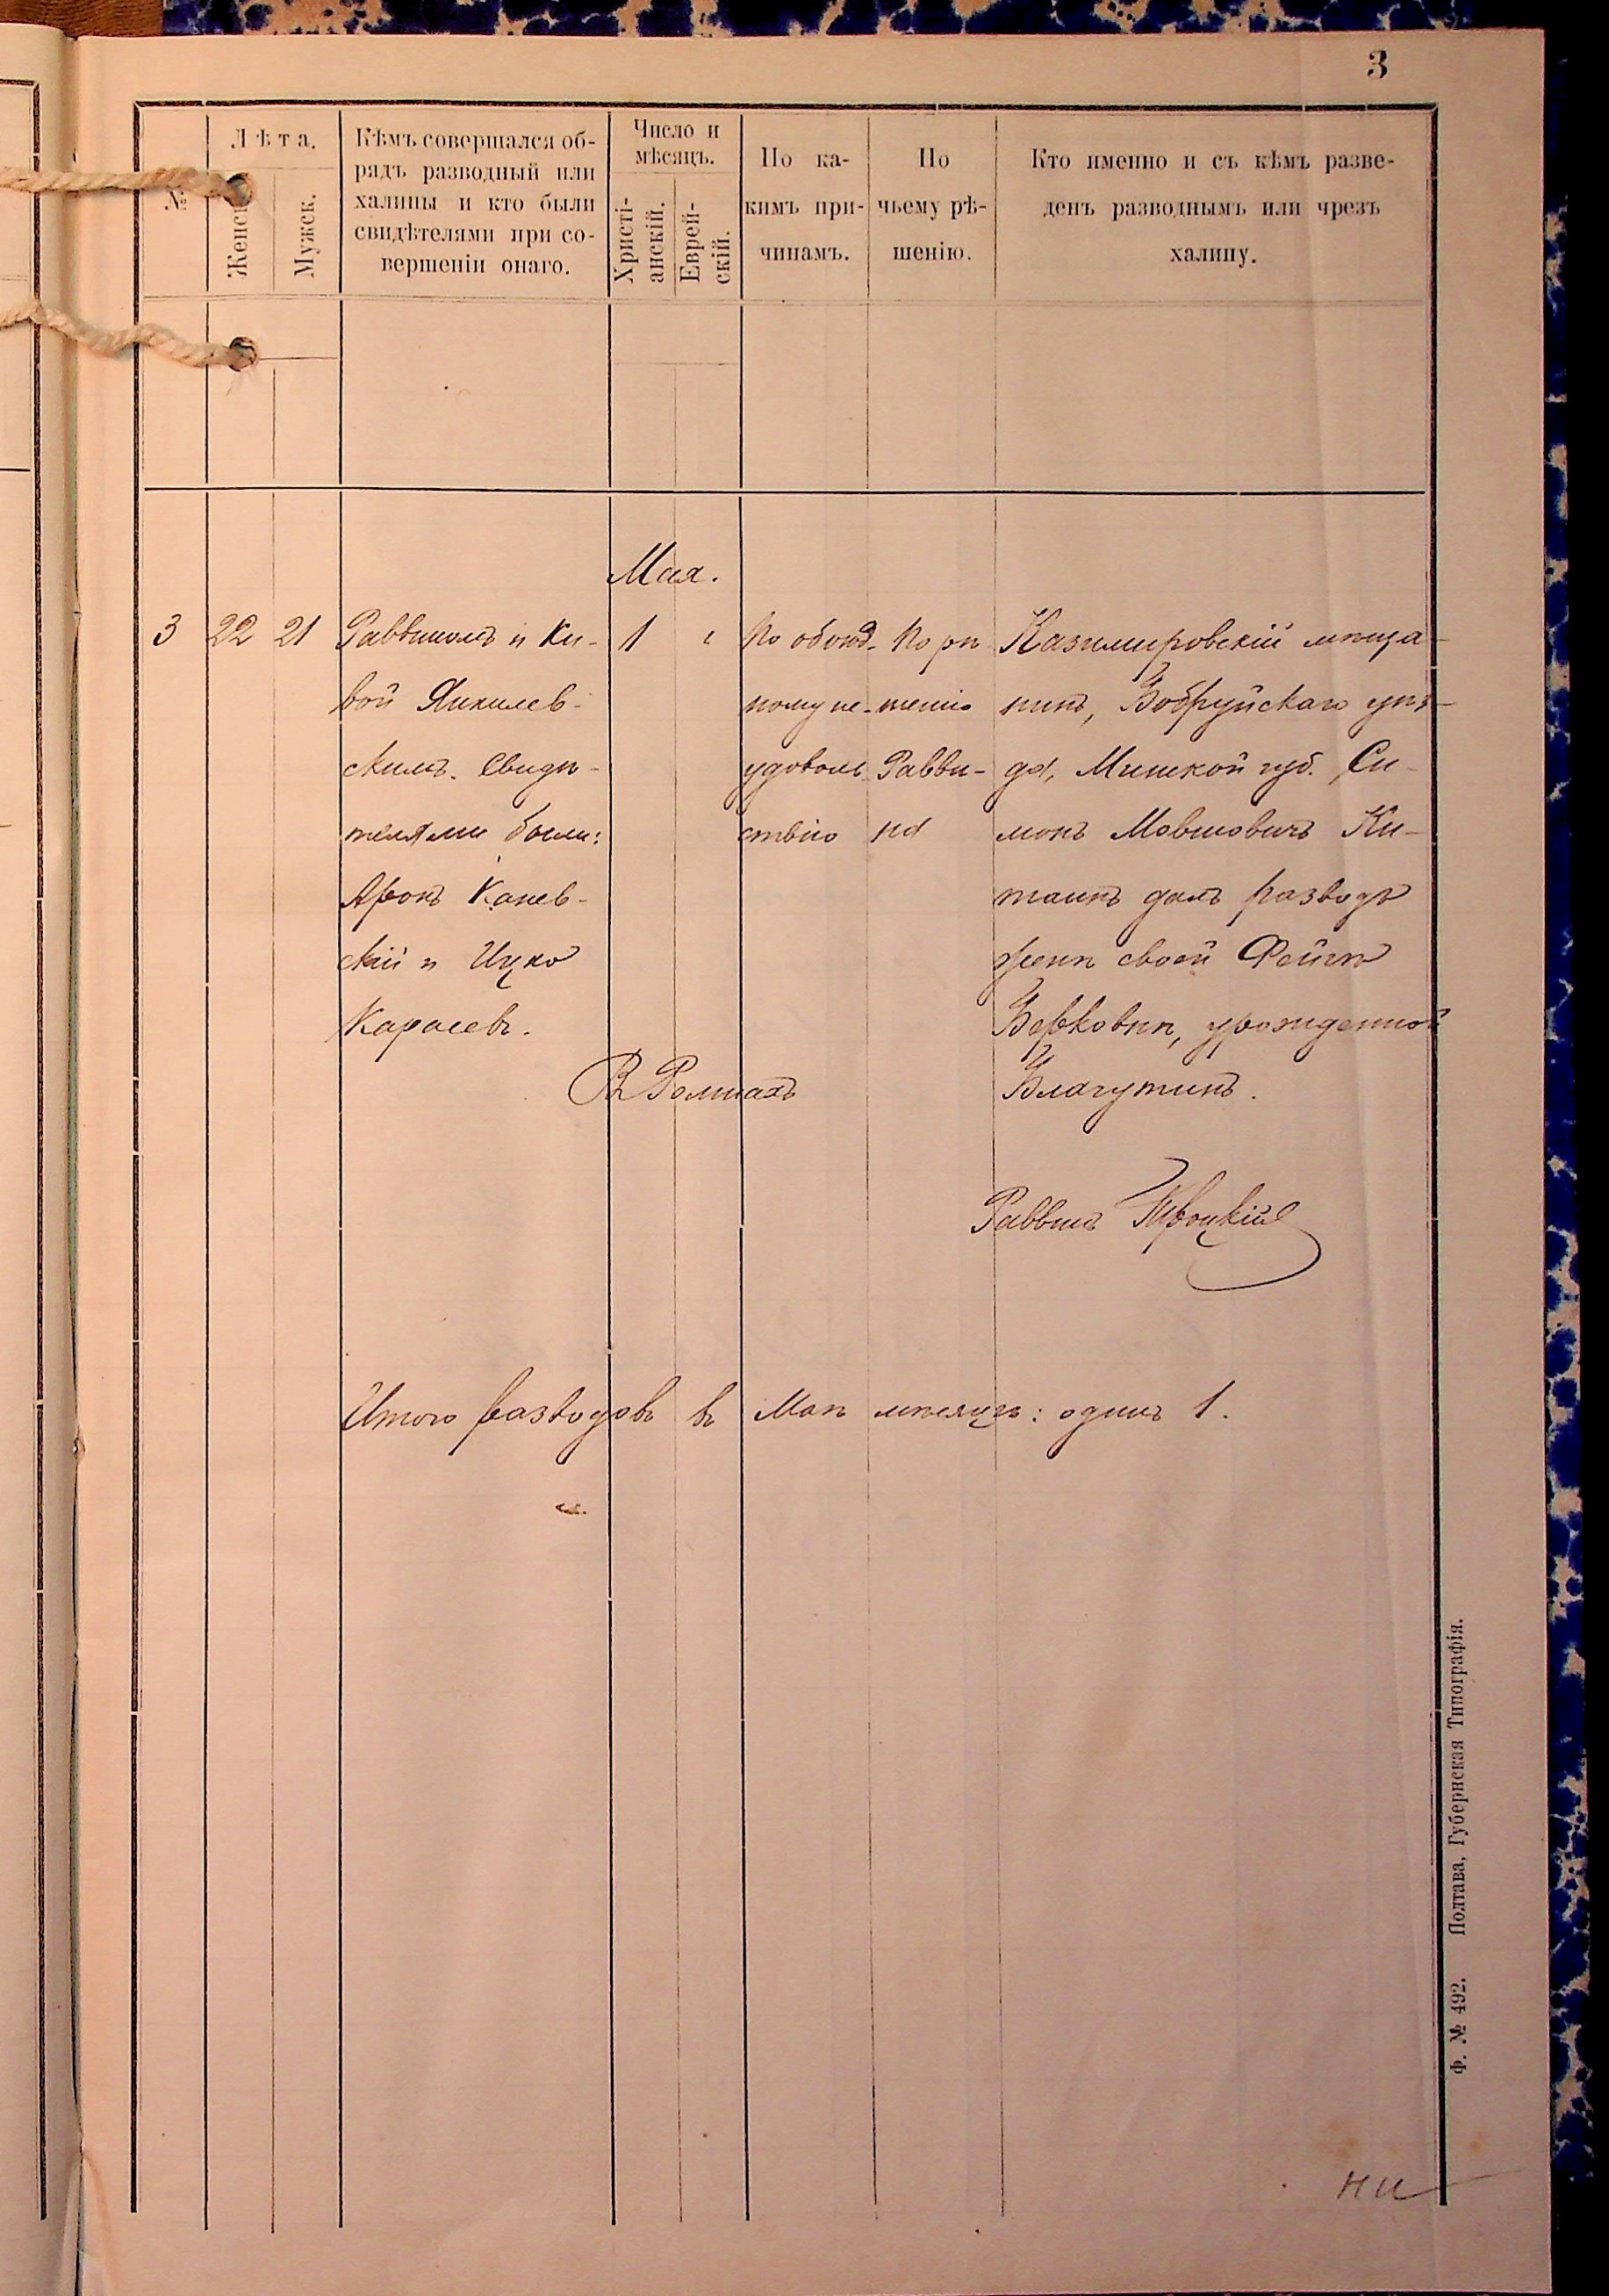 3
№
Лѣта.
Женск.
Мужск.
Кѣмъ совершался об-
рядъ разводный или
халицы и кто были
свидѣтелями при со-
вершеніи онаго.
Число и
мѣсяцъ.
Христі-
анскій.
Еврей-
скій.
По ка-
кимъ при-
чинамъ.
По
чьему рѣ-
шенію.
Кто именно и съ кѣмъ разве-
денъ разводнымъ или чрезъ
халицу.
Мая.
3
22
21
Раввиномъ и Ки-
вой
скимъ. Свидѣ-
телями были:
Аронъ Канев-
скій и Ицко
Карасевъ.
1
"
По обоюд-
ному не-
удоволь-
ствію
По рѣ-
шенію
Равви-
на
Казимировскій мѣща-
нинъ, Бобруйскаго уѣз-
да, Минской губ. Си-
монъ Мовшовичъ Ки-
таинъ далъ разводъ
женѣ своей Фейгѣ
Берковнѣ, урожденной
Благутинъ.
Въ Ромнахъ
Раввинъ
Итого разводовъ въ Маѣ мѣсяцѣ: одинъ 1.
Ф. № 492. Полтава, Губернская Типографія.